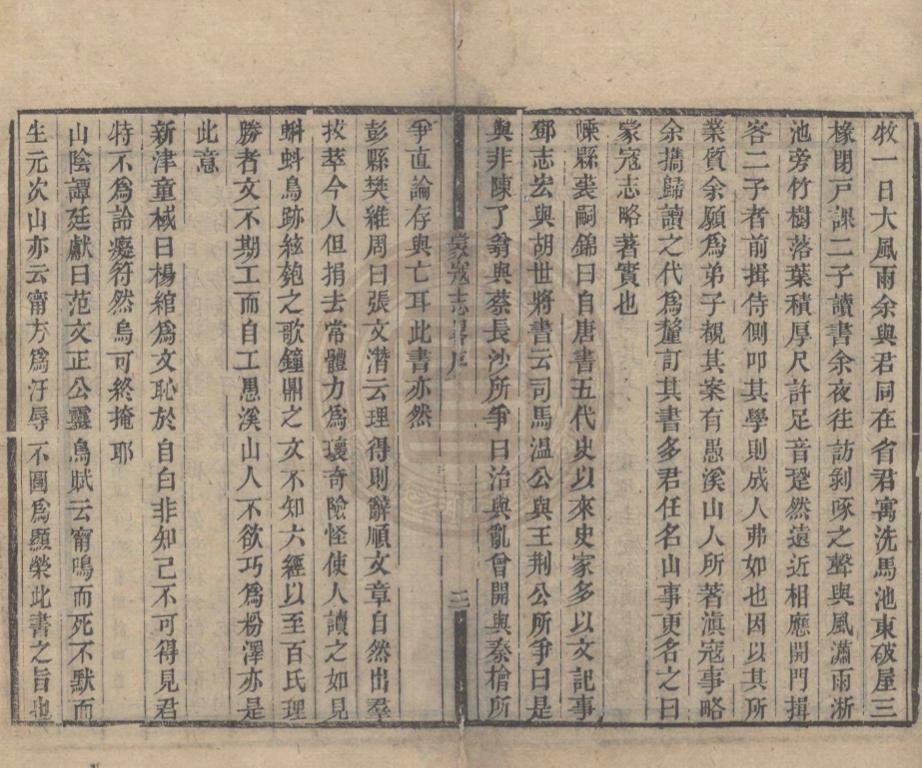 牧一日大風雨余與君同在省君寓洗馬池東破屋三
椽閉戸課二子讀書余夜往訪剝啄之聲與風瀟雨淅
池旁竹樹落葉積厚尺許足音跫然遠近相應開門揖
客二子者前揖侍側叩其學則成人弗如也因以其所
業質余願為弟子覩其案有愚溪山人所著滇寇事略
余攜歸讀之代為釐訂其書多君任名山事更名之曰
蒙寇志略著實也
嵊縣裘嗣錦曰自唐書五代史以來史家多以文記事
鄧志宏與胡世將書云司馬溫公與王荆公所爭曰是
與非陳了翁與蔡長沙所爭曰治與亂曾開與秦檜所
蒙寇志畧序
三
爭直論存與亡耳此書亦然
彭縣樊維周曰張文潛云理得則辭順文章自然出羣
拔萃今人但捐去常體力為瓌奇險怪使人讀之如見
蝌蚪鳥跡絃匏之歌鐘鼎之文不知六經以至百氏理
勝者文不期工而自工愚溪山人不欲巧為粉澤亦是
此意
新津童棫曰楊綰為文恥於自白非知己不可得見君
特不為詅癡符然烏可終掩耶
山陰譚廷獻曰范文正公靈烏賦云甯鳴而死不默而
生元次山亦云甯方為汙辱不圓為顯榮此書之旨也